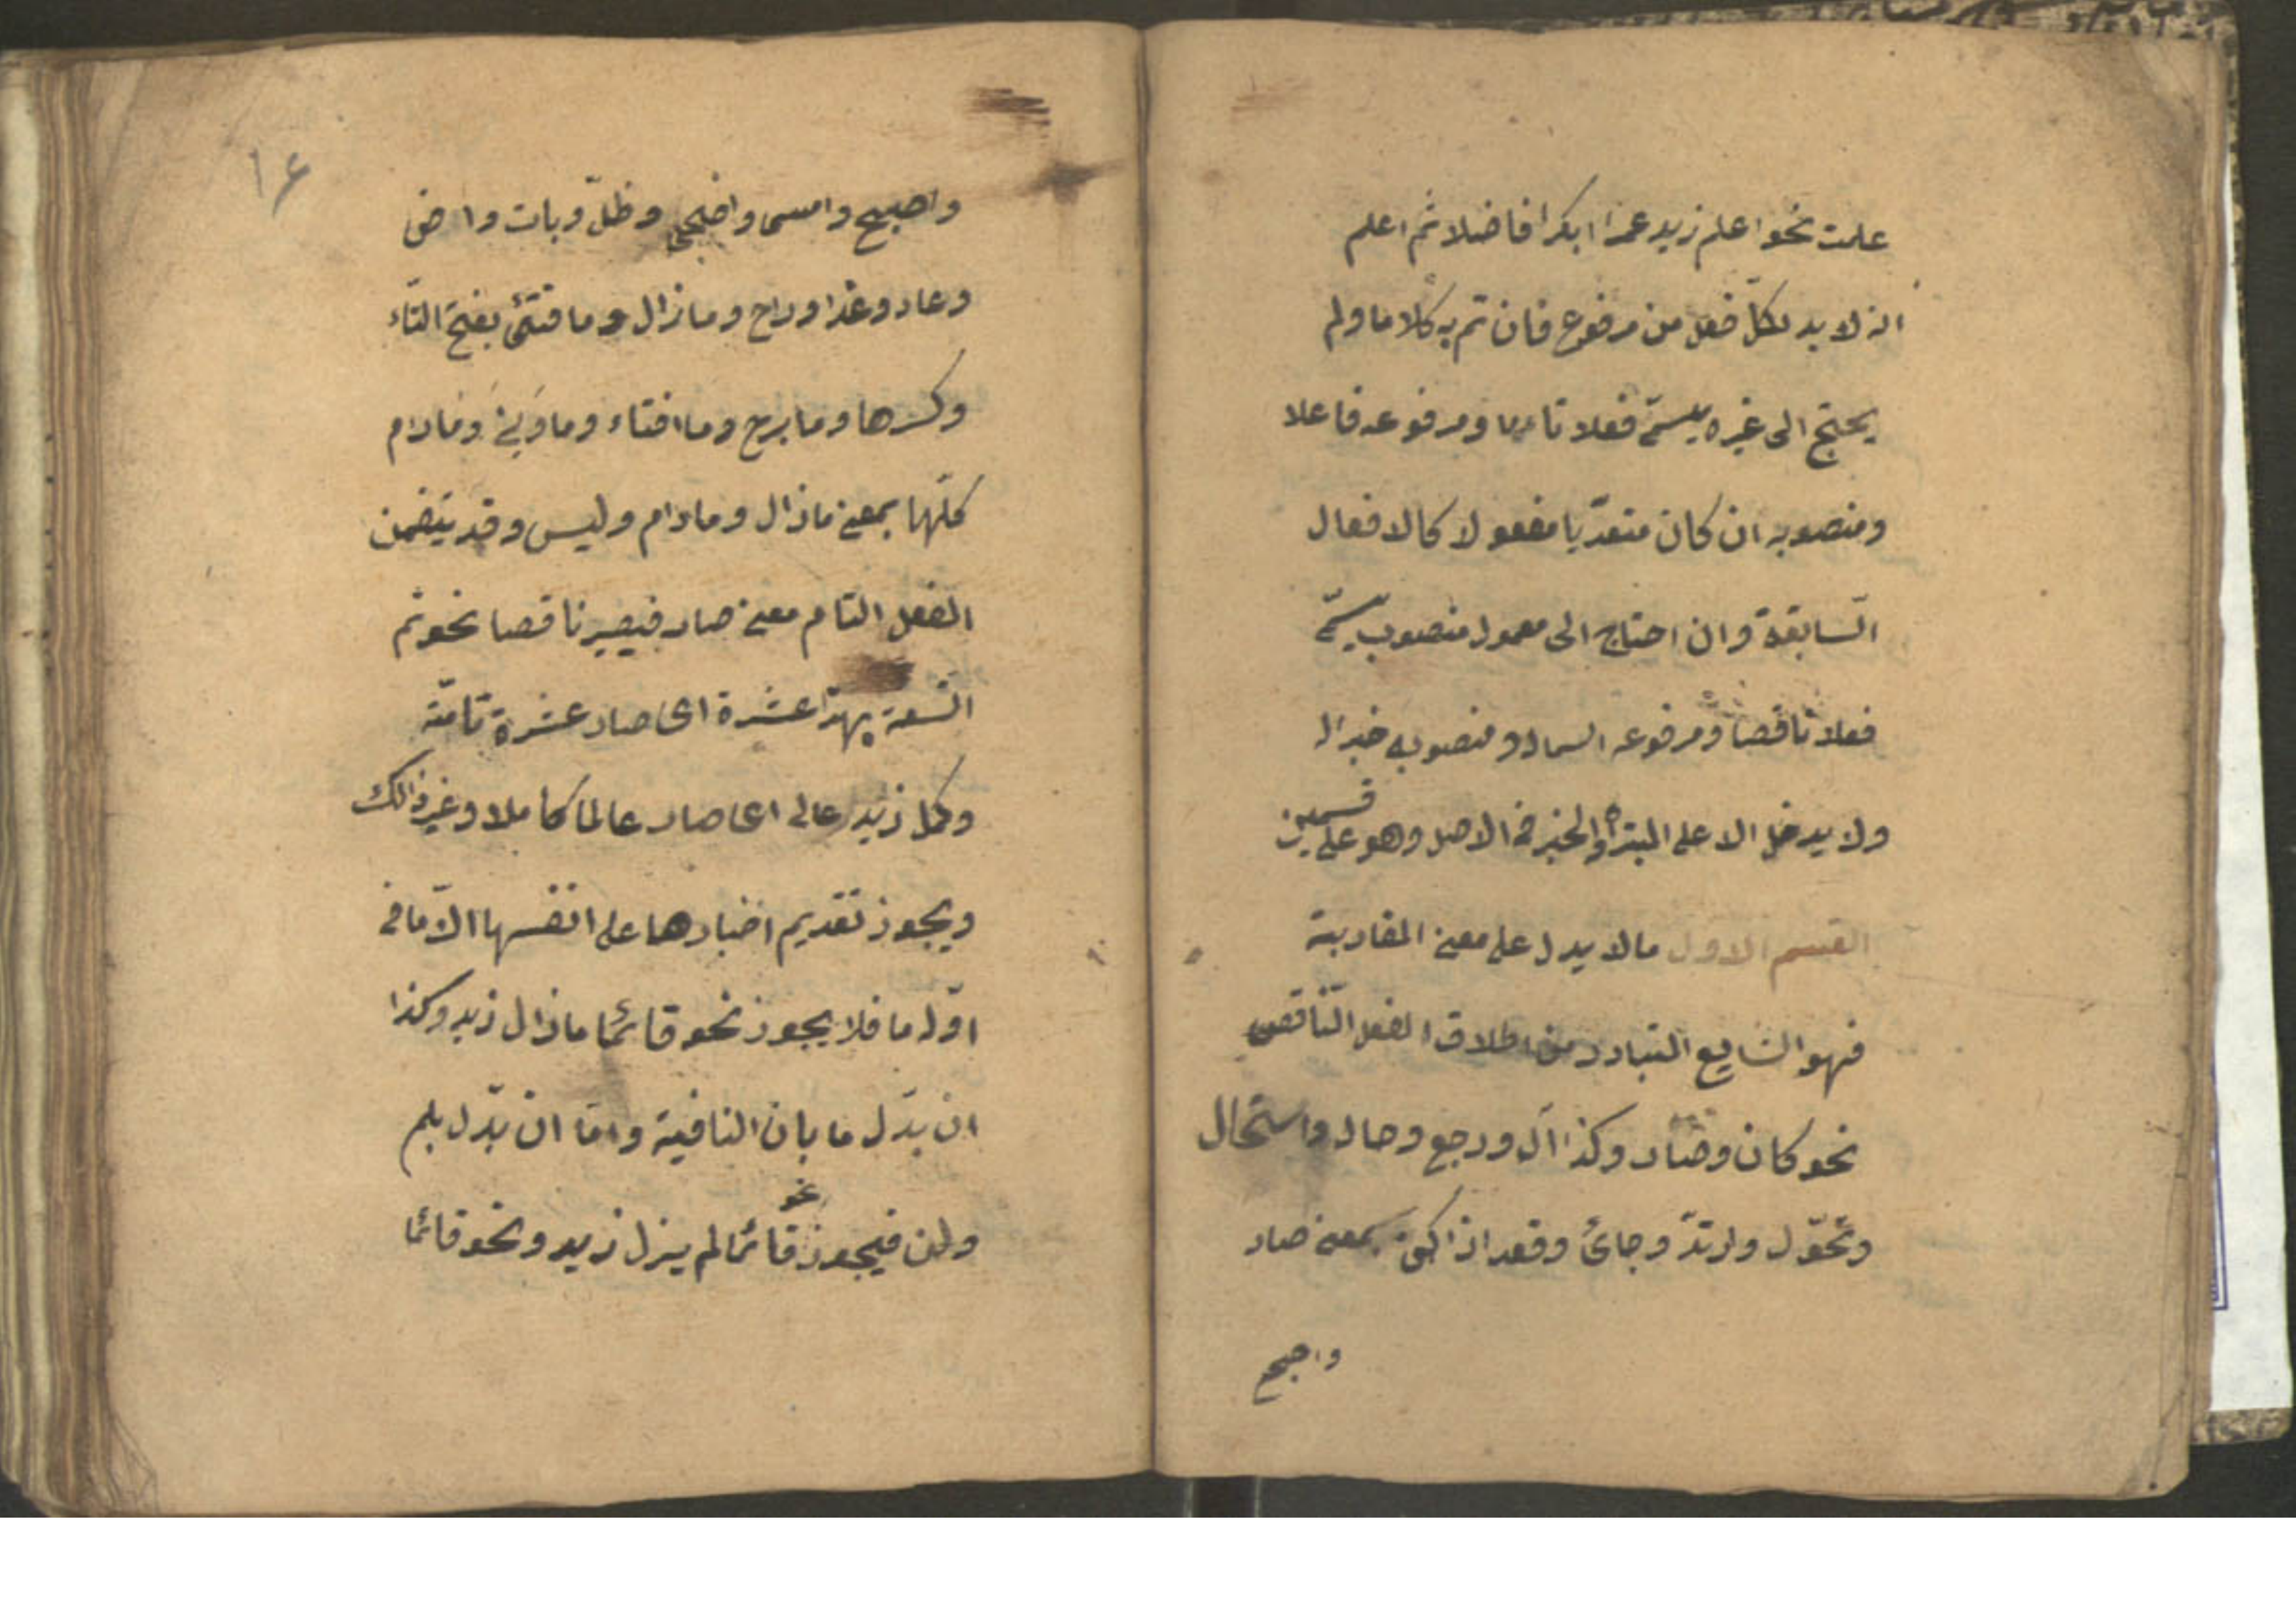 علمت نحو اعلم زيد عمرا ابكرا فاضلا ثم اعلم
انه لا بد لكلّ فعل من مرفوع فان تم به كلاما ولم
يحتج الى غيره يسمّى فعلا تاما ومرفوعه فاعلا
ومنصوبه ان كان متعدّيا مفعولا كالافعال
السّابقة وان احتاج الى معمول منصوب يسمّى
فعلا ناقصا ومرفوعه اسما له ومنصوبه خبرا له
ولا يدخل الا على المبتدأ والخبر فى الاصل وهو على قسمين
القسم الاول ما لا يدل على معنى المقاربة
فهو الشايع المتبادر من اطلاق الفعل النّاقص
نحو كان وصار وكذا آل ورجع وحال واستحال
وتحوّل وارتدّ وجائ وقعد اذا كن بمعنى صار
واصبح
١٤
واصبح وامسى واضحى وظلّ وبات واض
وعاد وغدا وراح وما زال وما فتئ بفتح التّاء
وكسرها وما برح وما افتاء وما وَنِىَ وَمَا دام
كلّها بمعنى ما زال وما دام وليس وقد يتضمن
الفعل التام معنى صار فيصير ناقصا نحو تم
التّسعة بهذا عشرة اى صار عشرة تامّة
وكمل زيد عالى اى صار عالما كاملا وغير ذالك
ويجوز تقديم اخبارها على انفسها الّا ما فى
اوّله ما فلا يجوز نحو قائما ما زال زيد وكذا
ان بدّل ما بان النافية وامّا ان بدّل بلم
ولن فيجوز نحو قائما لم يزل زيد ونحو قائما